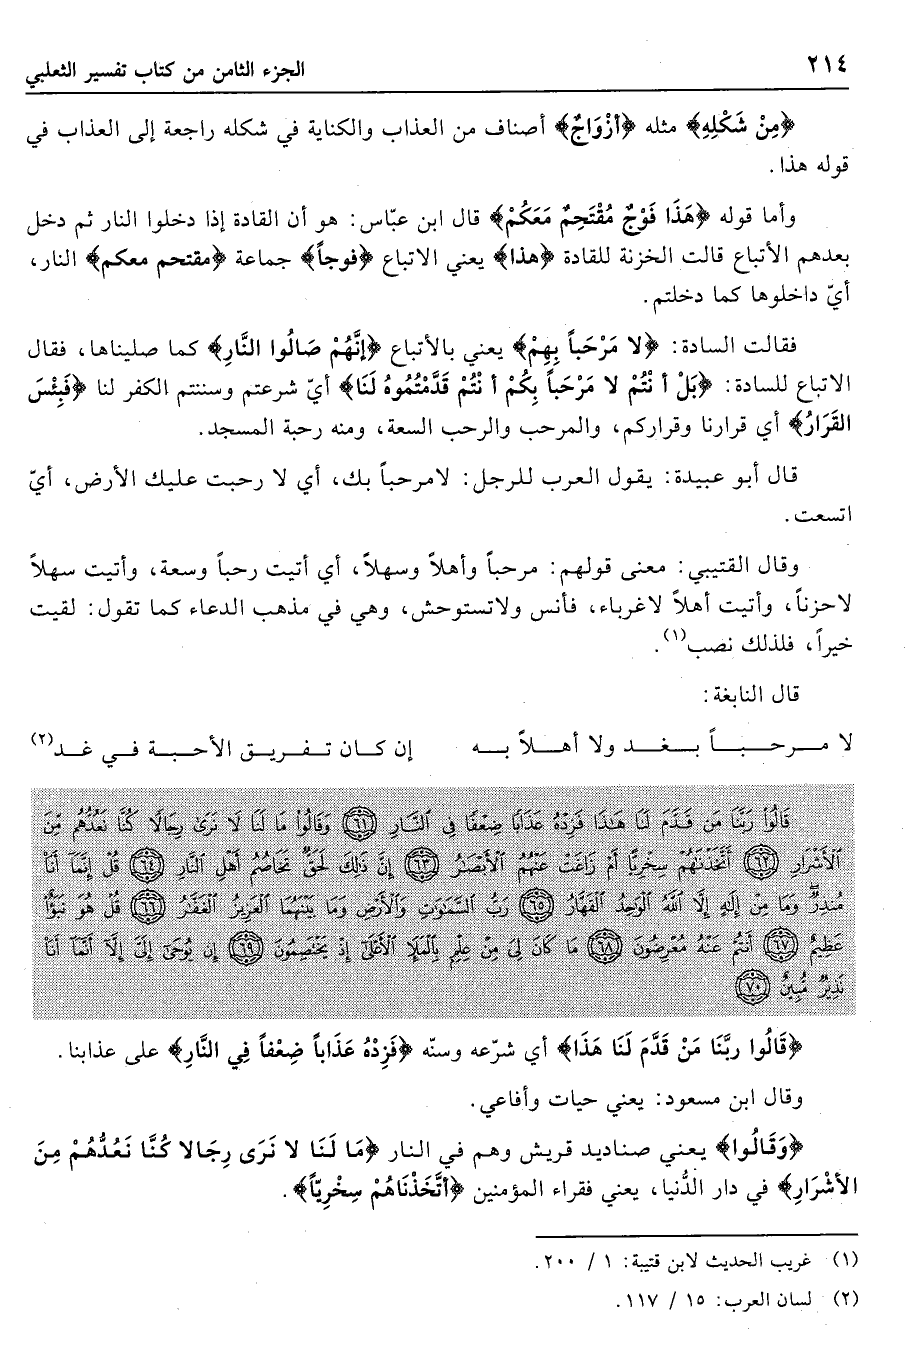 ٢١٤ الجزء الثامن من كتاب تفسير الثعلبي
﴿مِنْ شَكْلِهِ﴾ مثله ﴿أزْوَاجٌ﴾ أصناف من العذاب والكناية في شكله راجعة إلى العذاب في
قوله هذا.
وأما قوله ﴿هَذَا فَوْجٌ مُقْتَحِمٌ مَعَكُمْ﴾ قال ابن عبّاس: هو أن القادة إذا دخلوا النار ثم دخل
بعدهم الأتباع قالت الخزنة للقادة ﴿هذا﴾ يعني الاتباع ﴿فوجاً﴾ جماعة ﴿مقتحم معكم﴾ النار،
أيّ داخلوها كما دخلتم.
فقالت السادة: ﴿لا مَرْحَباً بِهِمْ﴾ يعني بالأتباع ﴿إنَّهُمْ صَالُوا النَّارِ﴾ كما صليناها، فقال
الاتباع للسادة: ﴿بَلْ أ نْتُمْ لا مَرْحَباً بِكُمْ أ نْتُمْ قَدَّمْتُمُوهُ لَنَا﴾ أيّ شرعتم وسننتم الكفر لنا ﴿فَبِئْسَ
القَرَارُ﴾ أي قرارنا وقراركم، والمرحب والرحب السعة، ومنه رحبة المسجد.
قال أبو عبيدة: يقول العرب للرجل: لامرحباً بك، أي لا رحبت عليك الأرض، أيّ
اتسعت.
وقال القتيبي: معنى قولهم: مرحباً وأهلاً وسهلاً، أي أتيت رحباً وسعة، وأتيت سهلاً
لاحزناً، وأتيت أهلاً لاغرباء، فأنس ولاتستوحش، وهي في مذهب الدعاء كما تقول: لقيت
خيراً، فلذلك نصب(١).
قال النابغة:
لا مـرحـبـاً بـغـد ولا أهـلاً بـه إن كـان تـفـريـق الأحـبـة فـي غـد(٢)
قَالُوا۟ رَبَّنَا مَن قَدَّمَ لَنَا هَٰذَا فَزِدْهُ عَذَابًا ضِعْفًا فِى ٱلنَّارِ ﴿٦١﴾ وَقَالُوا۟ مَا لَنَا لَا نَرَىٰ رِجَالًا كُنَّا نَعُدُّهُم مِّنَ
ٱلْأَشْرَارِ ﴿٦٢﴾ أَتَّخَذْنَٰهُمْ سِخْرِيًّا أَمْ زَاغَتْ عَنْهُمُ ٱلْأَبْصَٰرُ ﴿٦٣﴾ إِنَّ ذَٰلِكَ لَحَقٌّ تَخَاصُمُ أَهْلِ ٱلنَّارِ ﴿٦٤﴾ قُلْ إِنَّمَآ أَنَا۠
مُنذِرٌ ۖ وَمَا مِنْ إِلَٰهٍ إِلَّا ٱللَّهُ ٱلْوَٰحِدُ ٱلْقَهَّارُ ﴿٦٥﴾ رَبُّ ٱلسَّمَٰوَٰتِ وَٱلْأَرْضِ وَمَا بَيْنَهُمَا ٱلْعَزِيزُ ٱلْغَفَّٰرُ ﴿٦٦﴾ قُلْ هُوَ نَبَؤٌا۟
عَظِيمٌ ﴿٦٧﴾ أَنتُمْ عَنْهُ مُعْرِضُونَ ﴿٦٨﴾ مَا كَانَ لِىَ مِنْ عِلْمٍۭ بِٱلْمَلَإِ ٱلْأَعْلَىٰٓ إِذْ يَخْتَصِمُونَ ﴿٦٩﴾ إِن يُوحَىٰٓ إِلَىَّ إِلَّآ أَنَّمَآ أَنَا۠
نَذِيرٌ مُّبِينٌ ﴿٧٠﴾
﴿قَالُوا ربَّنَا مَنْ قَدَّمَ لَنَا هَذَا﴾ أي شرّعه وسنّه ﴿فَزِدْهُ عَذَاباً ضِعْفاً فِي النَّارِ﴾ على عذابنا.
وقال ابن مسعود: يعني حيات وأفاعي.
﴿وَقَالُوا﴾ يعني صناديد قريش وهم في النار ﴿مَا لَنَا لا نَرَى رِجَالا كُنَّا نَعُدُّهُمْ مِنَ
الأشْرَارِ﴾ في دار الدُّنيا، يعني فقراء المؤمنين ﴿أتَّخَذْنَاهُمْ سِخْرِيّاً﴾.
(١) غريب الحديث لابن قتيبة: ١ / ٢٠٠.
(٢) لسان العرب: ١٥ / ١١٧.